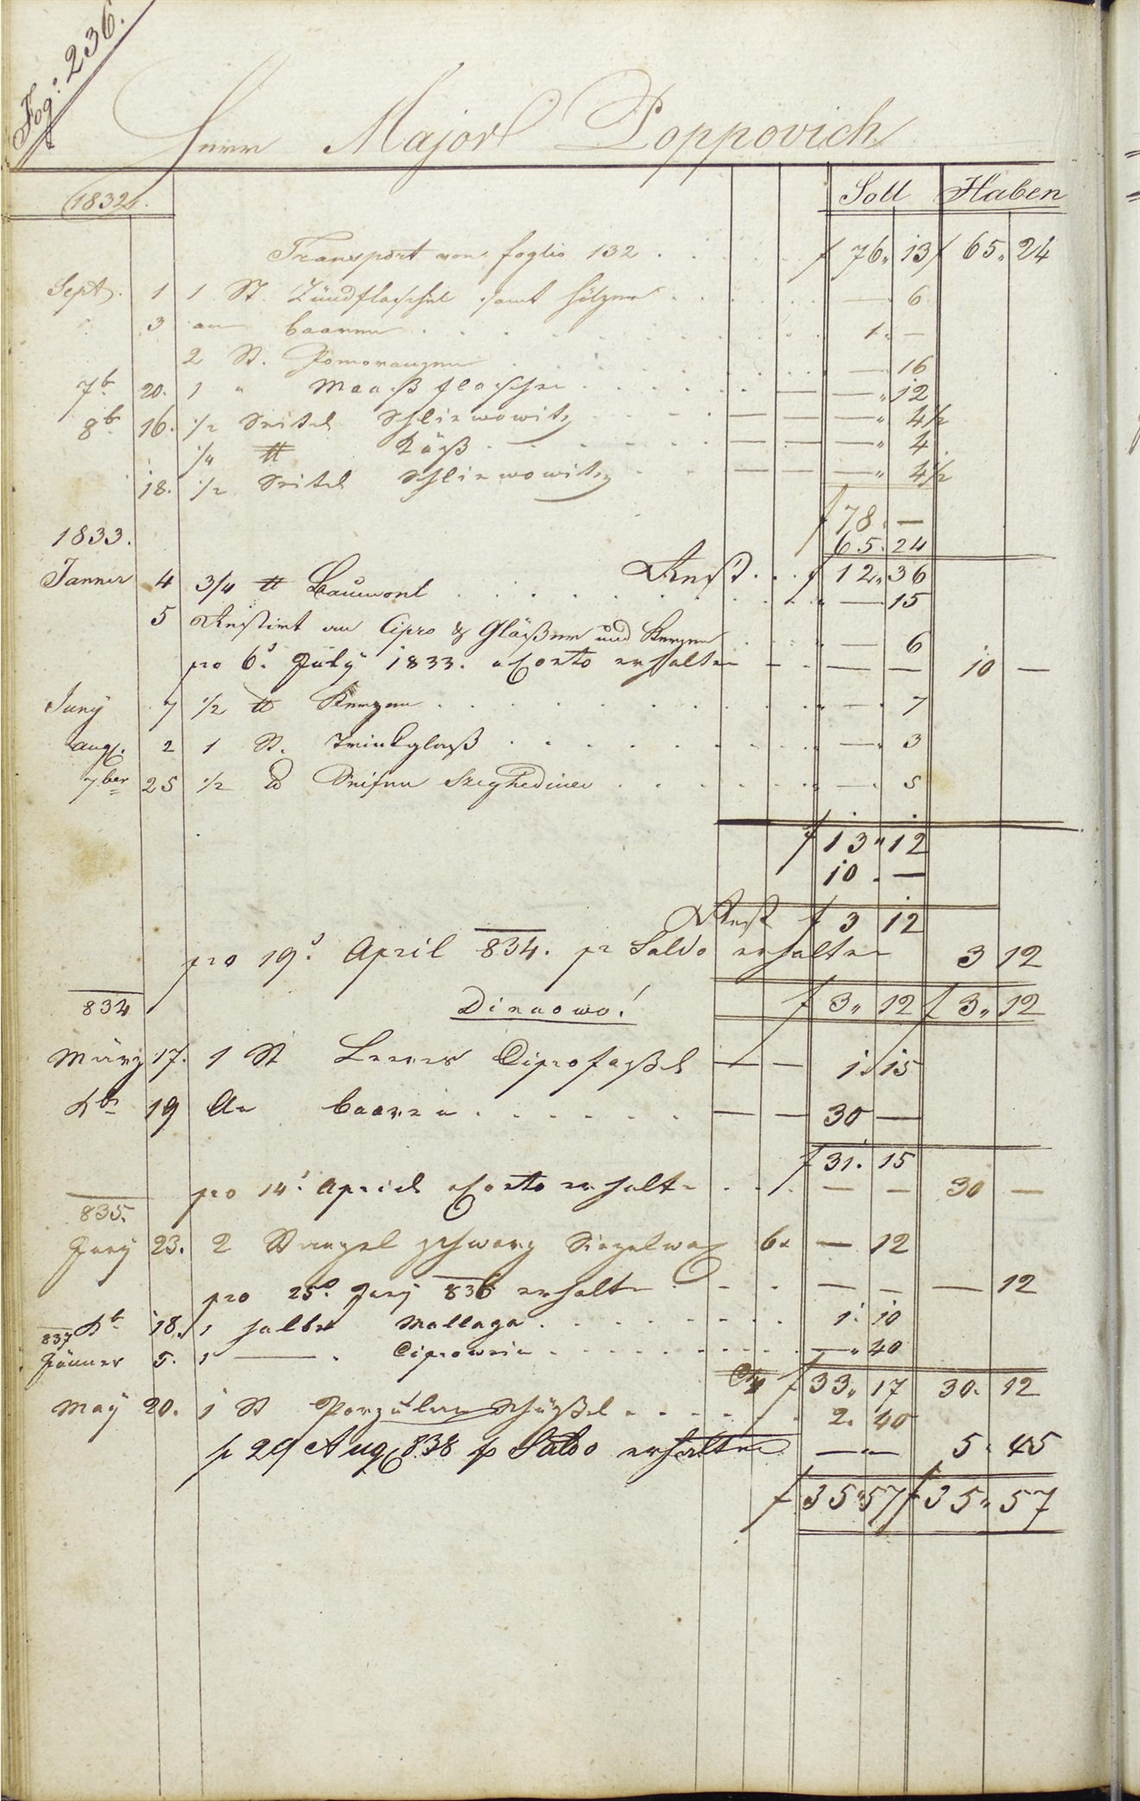 Fog: 236.
Herr Major Poppovich
1832. Soll Haben
Transport von foglio 132 . f 76. 13 f 65. 24
Sept. 1 1 St. Zündflaschel samt Hölzer — 6
3 an baaren 1. —
2 St. Pomoranzen — 16
7b 20. 1 " Maaß flasche — 12
8b 16. 1/2 Seitel Schliwowitz — 4 1/2
1/4 ℔ Käß — 4
18. 1/2 Seitel Schliwowitz — 4 1/2
f 78. —
1833. 65. 24
Rest f 12. 36
Janner 4 3/4 ℔ Baumoel — 15
5 Restirt an Cipro & Gläßer und Kerzen — 6
pro 6. July 1833. a Conto erhalten — — 10 —
Juny 7 1/2 ℔ Kerzen — 7
aug. 2 1 St. Trinkglaß — 3
7ber 25 1/2 ℔ Seifen Szeghediner — 5
f 13 " 12
10 . —
Rest f 3 12
pro 19. April 834. pr Saldo erhalten 3 12
834 f 3. 12 f 3. 12
März 17. 1 St Leeres Ciprofaßel — — 1. 15
Xb 19 An baaren — — 30 —
f 31. 15
pro 14. April a Conto erhalte — — 30 —
835.
Juny 23. 2 Stangel schwarz Siegelwax 6x — 12
pro 25. Juny 836 erhalte — — — 12
Xb 18. 1 halbe Mallaga 1. 10
837
Jänner 5. 1 — . Ciprowein — . 40
f 33. 17 30. 12
May 20. 1 St Porzulan Schüßel 2. 40
p 29 Aug 838 p Saldo erhalten — — 5. 45
f 35. 57 f 35. 57